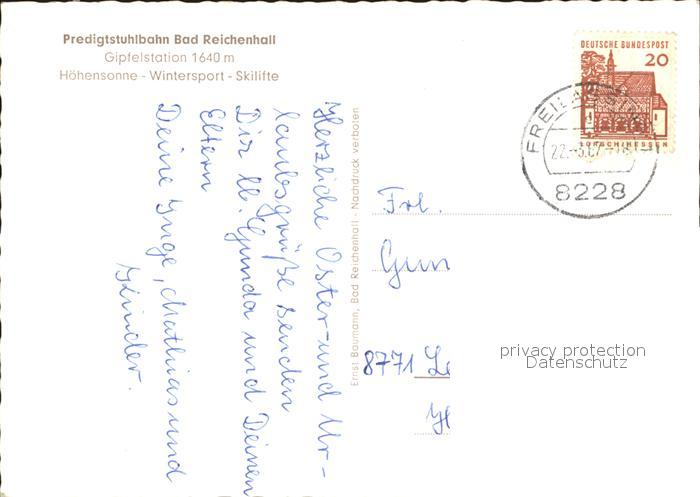 Predigtstuhlbahn Bad Reichenhall
Gipfelstation 1640 m
Höhensonne - Wintersport - Skilifte
Herzliche Oster- und Ur-
laubsgrüße senden
Dir lb. Gunda und Deinen
Eltern
Deine Inge, Mathias und
Kinder.
Ernst Baumann, Bad Reichenhall - Nachdruck verboten
DEUTSCHE BUNDESPOST
20
LORSCH/HESSEN
8228
Frl.
Gun
8771
privacy protection
Datenschutz